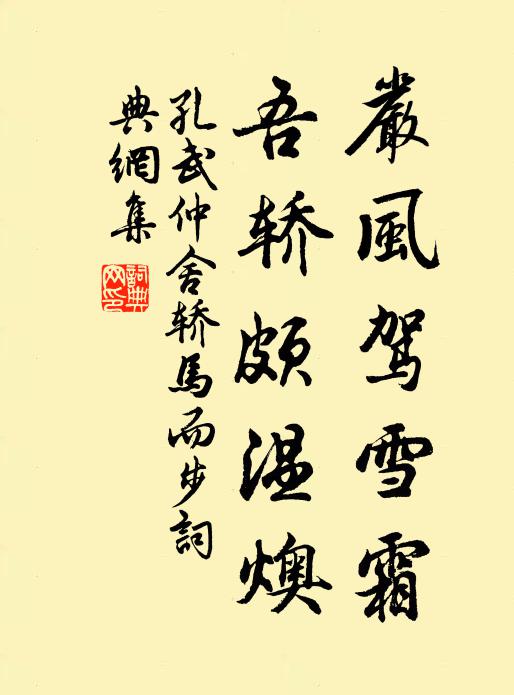 嚴風駕雪霜
吾轿頗溫燠
孔武仲舍轿馬而步詞
典網集
詞典
网印